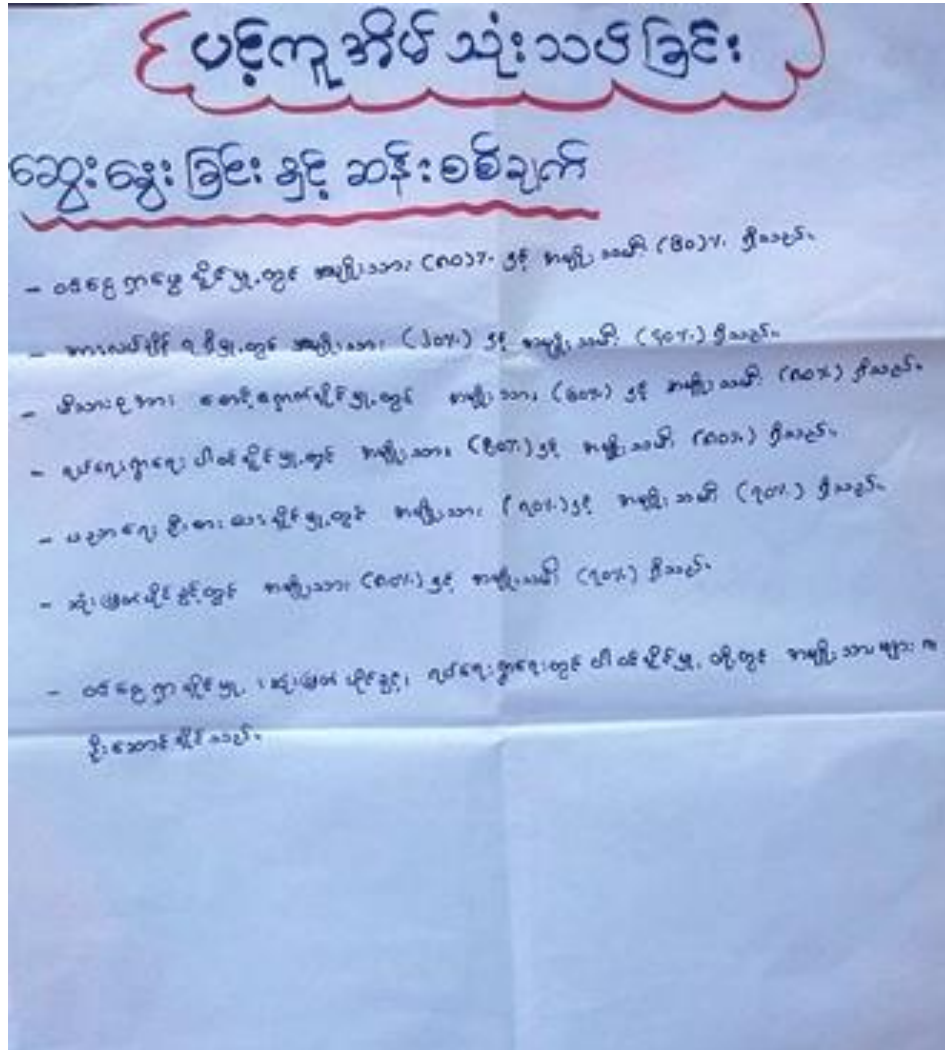 ပင့်ကူအိမ် သုံးသပ်ခြင်း
ဆွေးနွေးခြင်းနှင့် ဆန်းစစ်ချက်
- ဝင်ငွေရှာဖွေနိုင်မှုတွင် အမျိုးသား (၈၀)% နှင့် အမျိုးသမီး (၆၀)% ရှိသည်။
- အားလပ်ချိန်ရရှိမှုတွင် အမျိုးသား (၂၀%) နှင့် အမျိုးသမီး (၄၀%) ရှိသည်။
- မိသားစုအား စောင့်ရှောက်နိုင်မှုတွင် အမျိုးသား (၆၀%) နှင့် အမျိုးသမီး (၈၀%) ရှိသည်။
- ရပ်ရေးရွာရေး ပါဝင်နိုင်မှုတွင် အမျိုးသား (၆၀%) နှင့် အမျိုးသမီး (၈၀%) ရှိသည်။
- ပညာရေး ဦးစားပေးနိုင်မှုတွင် အမျိုးသား (၇၀%) နှင့် အမျိုးသမီး (၇၀%) ရှိသည်။
- ဆုံးဖြတ်ပိုင်ခွင့်တွင် အမျိုးသား (၈၀%) နှင့် အမျိုးသမီး (၇၀%) ရှိသည်။
- ဝင်ငွေရှာနိုင်မှု၊ ဆုံးဖြတ်ပိုင်ခွင့်၊ ရပ်ရေးရွာရေးတွင် ပါဝင်နိုင်မှု တို့တွင် အမျိုးသားများက
ဦးဆောင်နိုင်သည်။